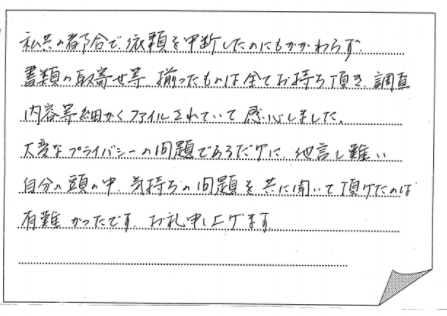 私共の都合で、依頼を中断したのにもかかわらず、
書類の取寄せ等、揃ったものは全てお持ち頂き、調査
内容等細かくファイルされていて感心しました。
大変なプライバシーの問題であるだけに、他言し難い
自分の頭の中、気持ちの問題を共に聞いて頂けたのは
有難かったです。お礼申し上げます。